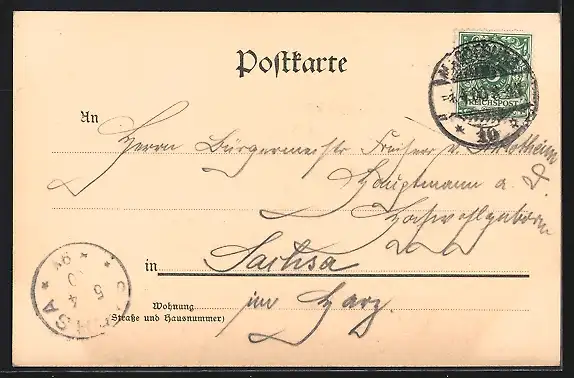 Postkarte
REICHSPOST
10
An
Herrn Bürgermeister Freiherr v. Schlotheim
Hauptmann a. D.
Hochwohlgeboren
in Sachsa
Wohnung
(Straße und Hausnummer)
im Harz.
SACHSA
5 4